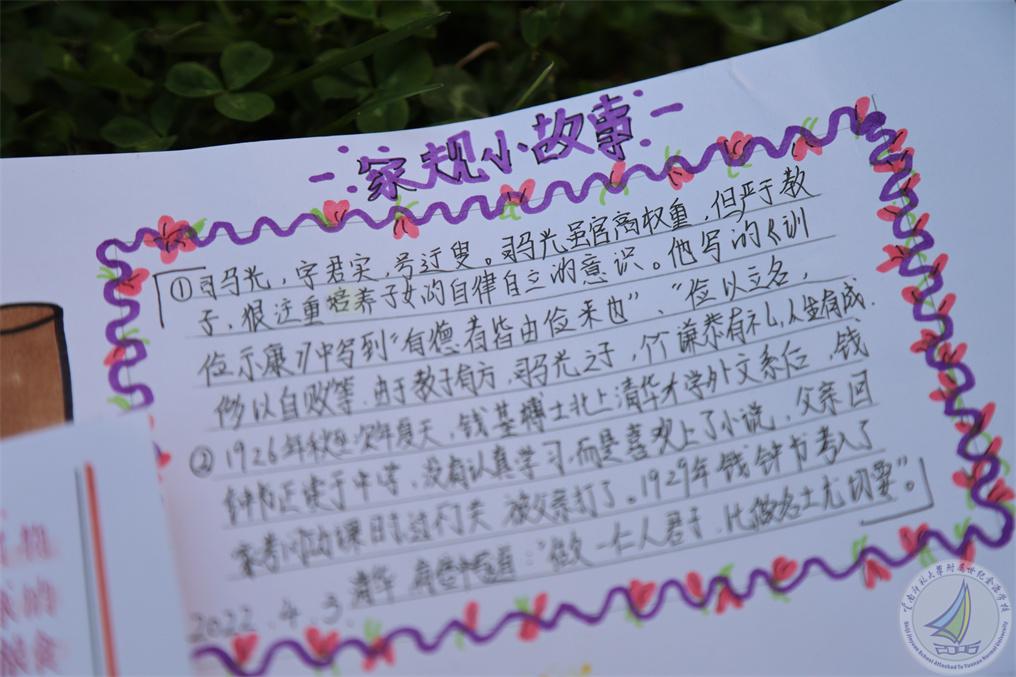 家规小故事
①司马光，字君实，号迂叟。司马光虽官高权重，但严于教
子，很注重培养子女的自律自立的意识。他写的《训
俭示康》中写到“有德者皆由俭来也”、“俭以立名，
侈以自败等，由于教子有方，司马光之子，个个谦恭有礼，人生有成．
②1926年秋至次年夏天，钱基搏士北上清华大学外文系后，钱
钟书正读于中学，没有认真学习，而是喜欢上了小说，父亲回
家考问功课 被父亲打了。1929年钱钟书考入了
清华 “做一仁人君子，比做名士尤切要”。
2022.4.3
云南师范大学附属世纪金源学校
Shiji Jinyuan School Attached To Yunnan Normal University
的
粮食